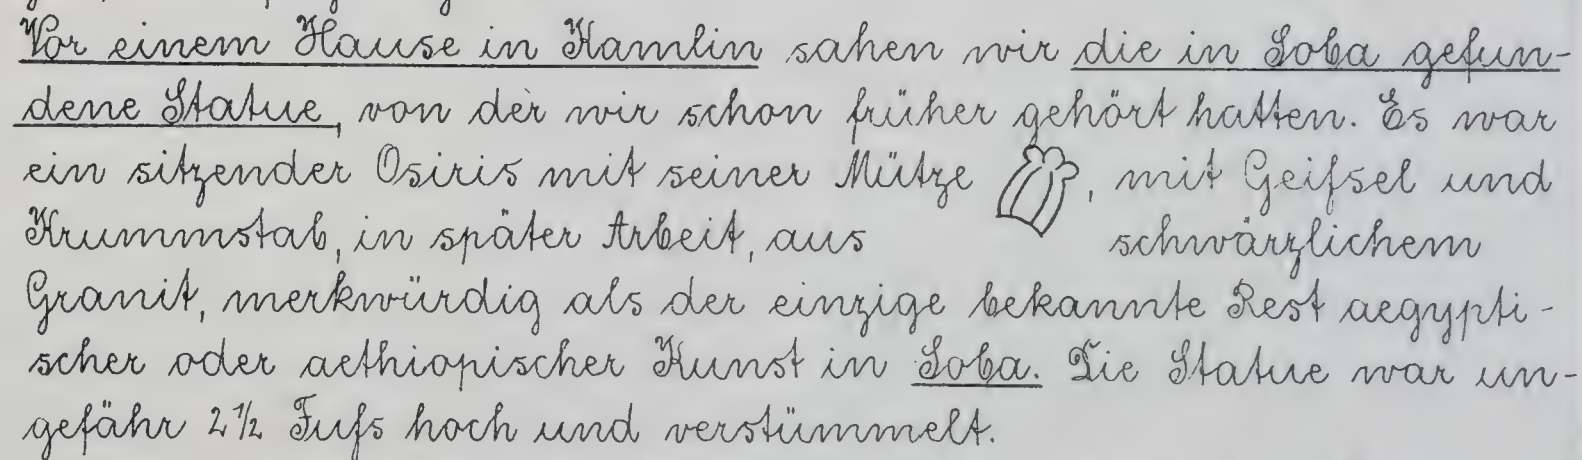 Vor einem Hause in Kamlin sahen wir die in Soba gefun-
dene Statue, von der wir schon früher gehört hatten. Es war
ein sitzender Osiris mit seiner Mütze , mit Geifsel und
Krummstab, in später Arbeit, aus schwärzlichem
Granit, merkwürdig als der einzige bekannte Rest aegypti-
scher oder aethiopischer Kunst in Soba. Die Statue war un-
gefähr 2 1/2 Fufs hoch und verstümmelt.